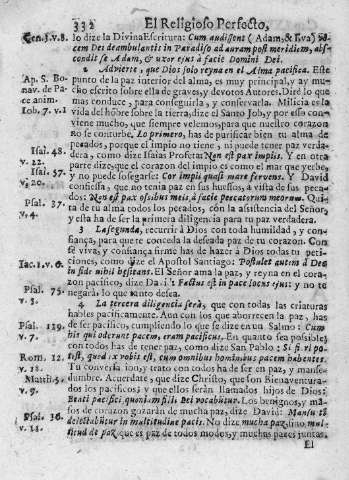 332 El Religioso Perfecto,
Gen. 3. v. 8. lo dize la Divina Escritura: Cum audissent (Adam, & Eva) vo-
cem Dei deambulantis in Paradiso ad auram post meridiem, abs-
condit se Adam, & uxor ejus à facie Domini Dei.
2 Advierte, que Dios solo reyna en el Alma pacifica. Este
Ap. S. Bo- punto de la paz interior del alma, es muy principal, y ay mu-
nav. de Pa- cho escrito sobre ella de graves, y devotos Autores. Diré lo que
ce anim. mas conduce, para conseguirla, y conservarla. Milicia es la
Iob. 7. v. 1 vida del hombre sobre la tierra, dize el Santo Job, y por esso con-
viene mucho, que siempre velemos, para que nuestro corazon
no se conturbe. Lo primero, has de purificar bien tu alma de
Isai. 48. pecados, porque el impio no tiene, ni puede tener paz verda-
v. 22. dera, como dize Isaias Profeta: Non est pax impiis. Y en otra
Isai. 57. parte dize, que el corazon del impio es como el mar que yerbe,
v. 20. y no puede sosegarse: Cor impii quasi mare fervens. Y David
confiessa, que no tenia paz en sus huessos, à vista de sus peca-
Psal. 37. dos: Non est pax ossibus meis, à facie peccatorum meorum. Qui-
v. 4. ta de tu alma todos los pecados, con la assistencia del Señor,
y essa ha de ser la primera diligencia para tu paz verdadera.
3 La segunda, recurrir à Dios con toda humildad, y con-
fiança, para que te conceda la deseada paz de tu corazon. Con
fè viva, y confiança firme has de hazer à Dios todas tu peti-
Iac. 1. v. 6. ciones, como dize el Apostol Santiago: Postulet autem à Deo
in fide nihil hesitans. El Señor ama la paz, y reyna en el cora-
zon pacifico, dize David: Factus est in pace locus ejus: y no te
Psal. 75. negará lo que tanto desea.
v. 3. 4 La tercera diligencia será, que con todas las criaturas
hables pacificamente. Aun con los que aborrecen la paz, has
Psal. 119. de ser pacifico, cumpliendo lo que se dize en un Salmo: Cum
v. 7. his qui oderunt pacem, eram pacificus. En quanto sea possible,
con todos has de tener paz, como dize San Pablo: Si fieri po-
Rom. 12. test, quod ex vobis est, cum omnibus hominibus pacem habentes.
v. 18. Tu conversacion, y trato con todos ha de ser en paz, y manse-
Matth. 5. dumbre. Acuerdate, que dize Christo, que son Bienaventura-
v. 9. dos los pacificos; y que ellos serán llamados hijos de Dios:
Beati pacifici, quoniam filii Dei vocabuntur. Los benignos, y ma-
sos de corazon gozarán de mucha paz, dize David: Mansueti
Psal. 36. delectabuntur in multitudine pacis. No dize mucha paz, sino mul-
v. 11. titud de paz, que es paz de todos modos, y muchas pazes juntas.
El